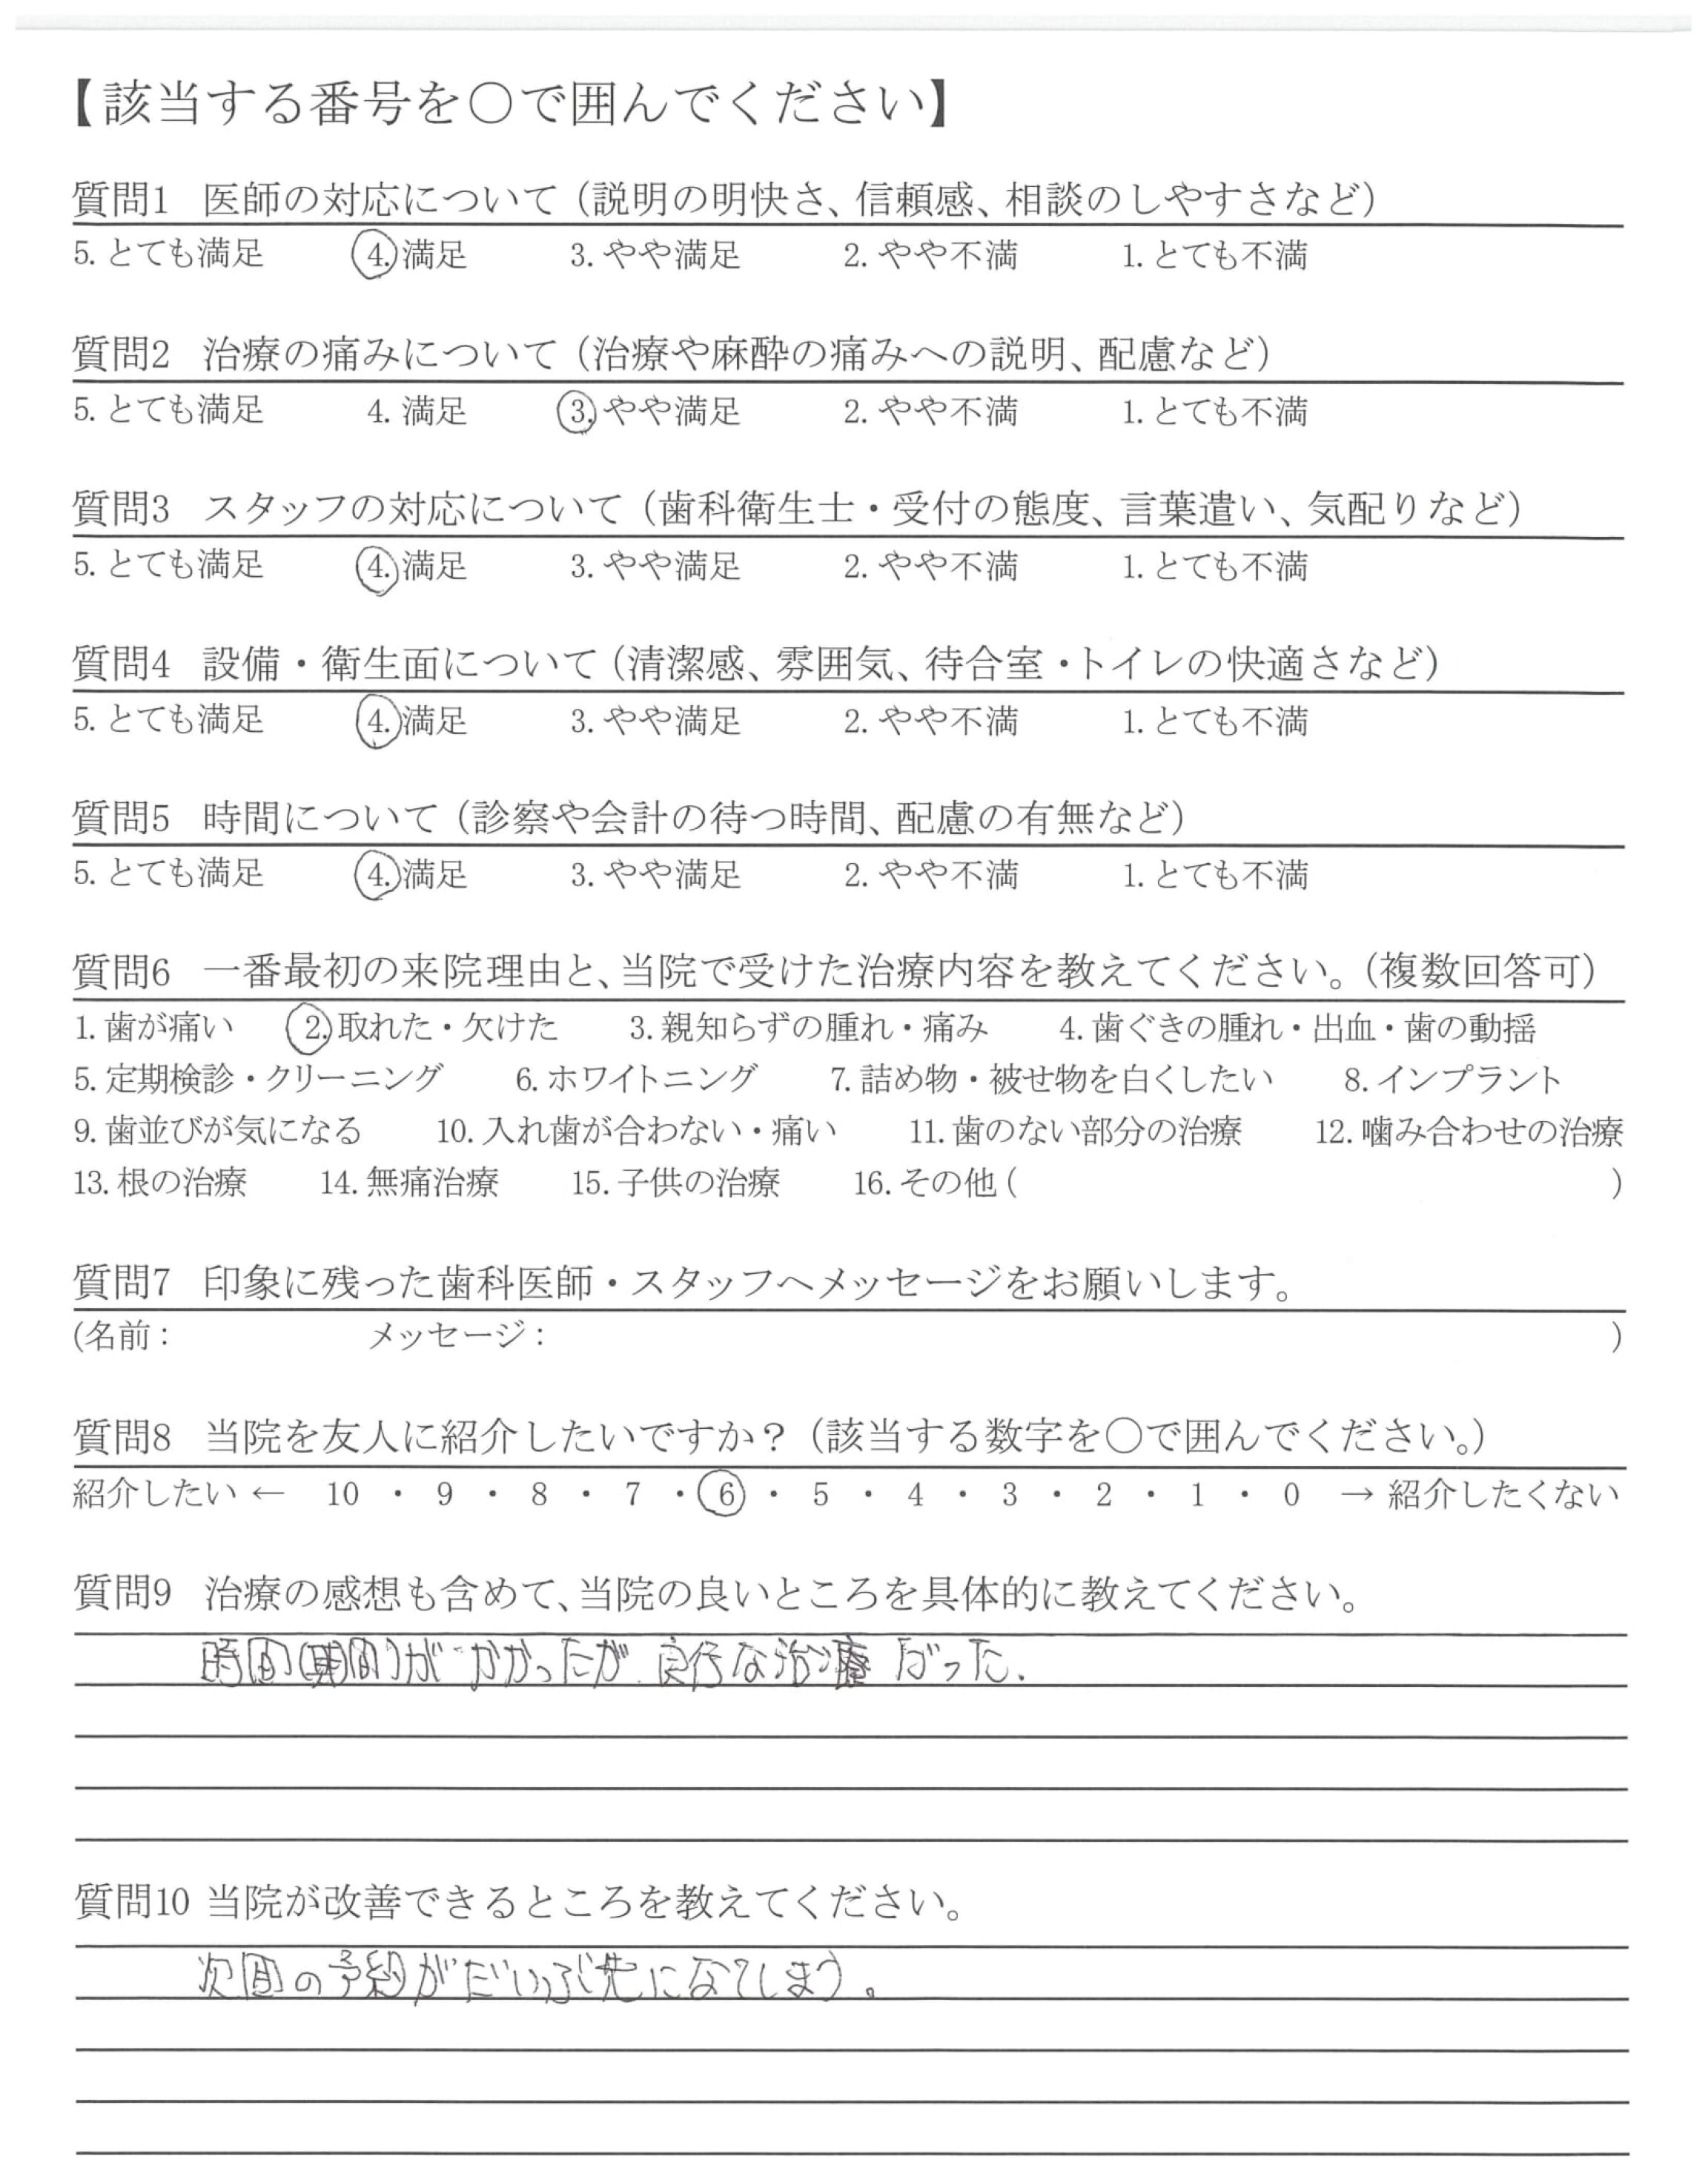 【該当する番号を○で囲んでください】
質問1 医師の対応について（説明の明快さ、信頼感、相談のしやすさなど）
5. とても満足 4. 満足 3. やや満足 2. やや不満 1. とても不満
質問2 治療の痛みについて（治療や麻酔の痛みへの説明、配慮など）
5. とても満足 4. 満足 3. やや満足 2. やや不満 1. とても不満
質問3 スタッフの対応について（歯科衛生士・受付の態度、言葉遣い、気配りなど）
5. とても満足 4. 満足 3. やや満足 2. やや不満 1. とても不満
質問4 設備・衛生面について（清潔感、雰囲気、待合室・トイレの快適さなど）
5. とても満足 4. 満足 3. やや満足 2. やや不満 1. とても不満
質問5 時間について（診察や会計の待つ時間、配慮の有無など）
5. とても満足 4. 満足 3. やや満足 2. やや不満 1. とても不満
質問6 一番最初の来院理由と、当院で受けた治療内容を教えてください。（複数回答可）
1. 歯が痛い 2. 取れた・欠けた 3. 親知らずの腫れ・痛み 4. 歯ぐきの腫れ・出血・歯の動揺
5. 定期検診・クリーニング 6. ホワイトニング 7. 詰め物・被せ物を白くしたい 8. インプラント
9. 歯並びが気になる 10. 入れ歯が合わない・痛い 11. 歯のない部分の治療 12. 噛み合わせの治療
13. 根の治療 14. 無痛治療 15. 子供の治療 16. その他（ ）
質問7 印象に残った歯科医師・スタッフへメッセージをお願いします。
（名前： メッセージ： ）
質問8 当院を友人に紹介したいですか？（該当する数字を○で囲んでください。）
紹介したい ← 10 ・ 9 ・ 8 ・ 7 ・ 6 ・ 5 ・ 4 ・ 3 ・ 2 ・ 1 ・ 0 → 紹介したくない
質問9 治療の感想も含めて、当院の良いところを具体的に教えてください。
時間(期間)がかかったが 良好な治療だった.
質問10 当院が改善できるところを教えてください。
次回の予約がだいぶ先になってしまう。